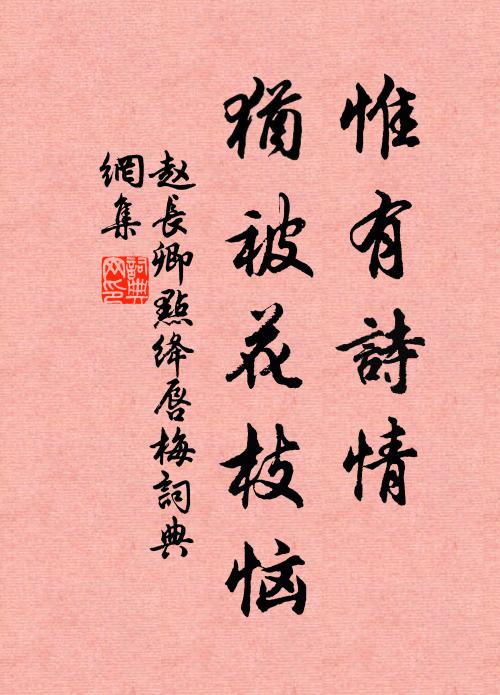 惟有詩情
猶被花枝恼
赵長卿點絳唇梅詞典
網集
詞典
网印